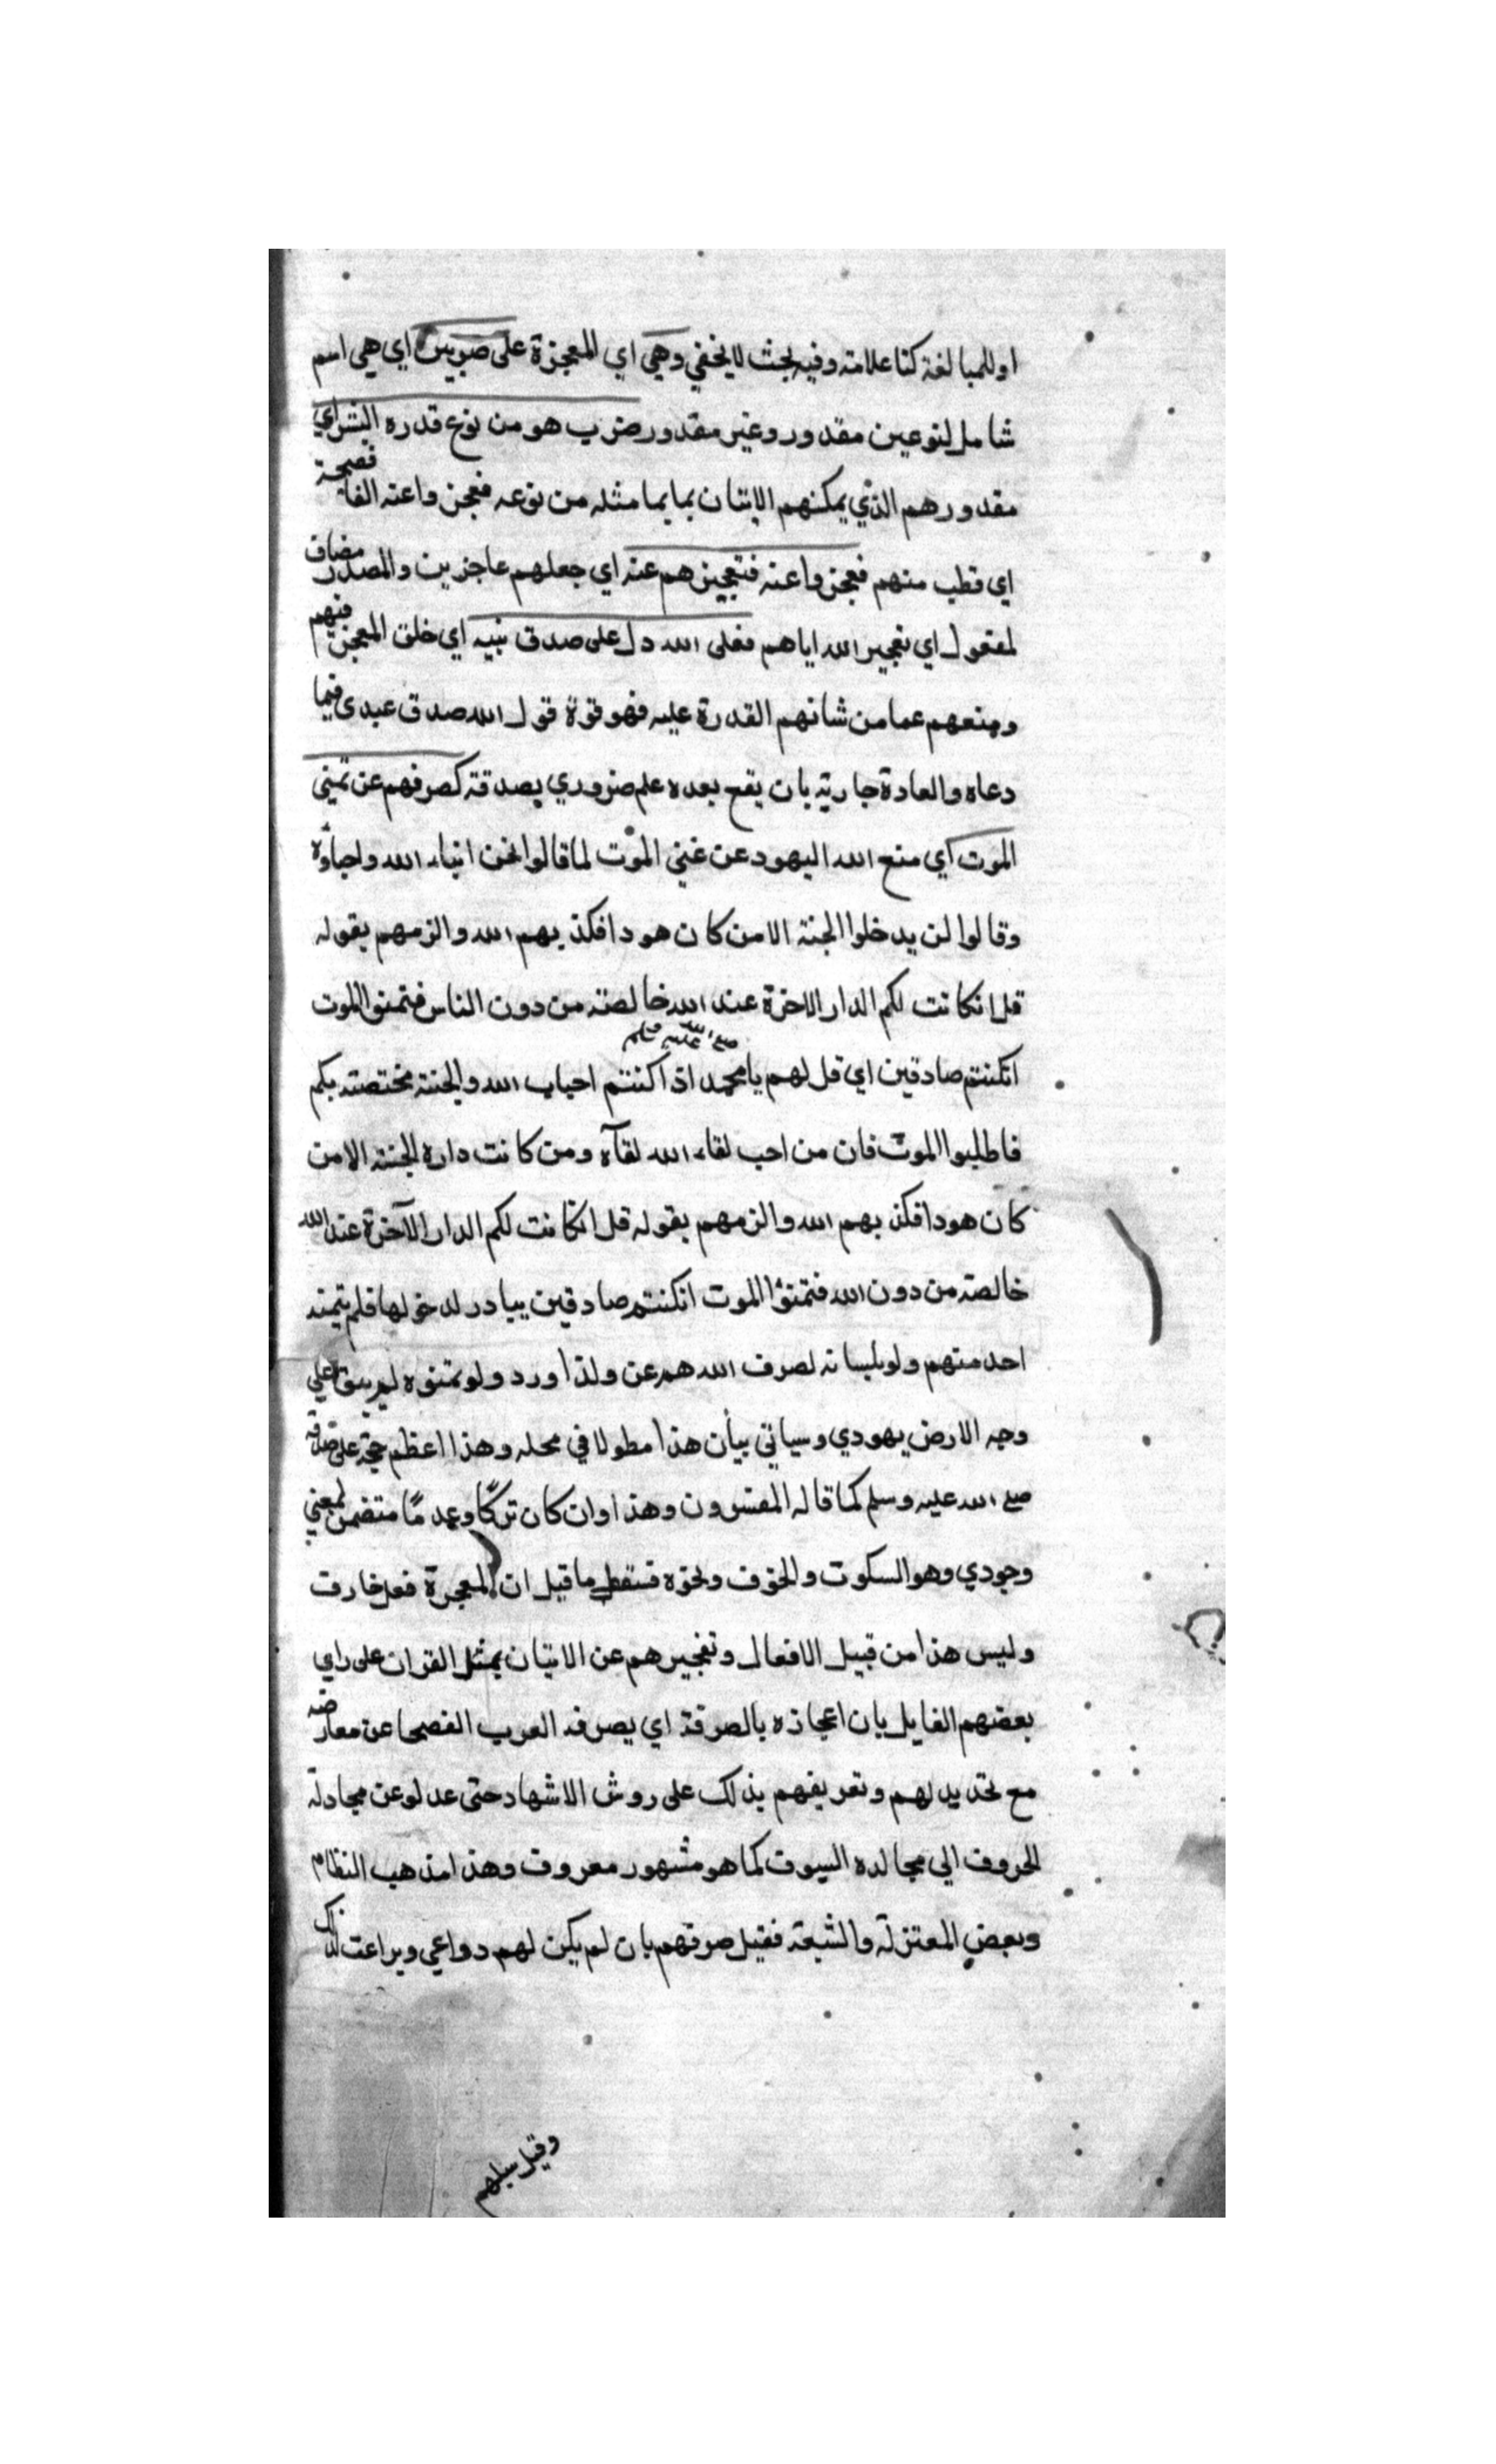 او للمبالغة كنا علامة وفيه بحث لا يخفي وهي اي المعجزة على ضربين اي هي اسم
شامل لنوعين مقدور وغير مقدور ضرب هو من نوع قدره البشر اي
مقدورهم الذي يمكنهم الاتيان بما يماثله من نوعه فعجزوا عنه الفا فصيحة
اي قطب منهم فعجزوا عنه فتعجيزهم عنه اي جعلهم عاجزين والمصدر مضاف
لمفعول اي تعجيز الله اياهم فعلى الله دل على صدق نبيه اي خلق المعجزة فيهم
ومنعهم عما من شانهم القدرة عليه فهو قوة قول الله صدق عبدى فيما
دعاه والعادة جارية بان يقع بعده علم ضروري بصدقه كصرفهم عن تمني
الموت اي منع الله اليهود عن غني الموت لما قالوا نحن ابناء الله واحباؤه
وقالوا لن يدخلوا الجنة الا من كان هودا فكذبهم الله والزمهم بقوله
قل انكانت لكم الدار الاخرة عند الله خالصة من دون الناس فتمنوا الموت
صلى الله عليه وسلم
انكنتم صادقين اي قل لهم يا محمد اذا كنتم احباب الله والجنة مختصة بكم
فاطلبوا الموت فان من احب لقاء الله لقآه ومن كانت داره الجنة الا من
كان هودا فكذبهم الله والزمهم بقوله قل انكانت لكم الدار الآخرة عند الله
خالصة من دون الله فتمنوا الموت انكنتم صادقين يبادر لدخولها فلم يتمنه
احد منهم ولو بلسانه لصرف الله هم عن ولذا ورد ولو تمنوه لم يبق على
وجه الارض يهودي وسياتي بيان هذا مطولا في محله وهذا اعظم حجة على صدقه
صلى الله عليه وسلم كما قاله المفسرون وهذا وان كان تركًا وعدمًا متضمن لمعني
وجودي وهو السكوت والخوف ونحوه فسقط ما قيل ان المعجزة فعل خارق
وليس هذا من قبيل الافعال وتعجيزهم عن الاتيان بمثل القران على راي
بعضهم القايل بان اعجازه بالصرفة اي بصرفه العرب الفصحا عن معارضه
مع تحديد لهم وتعريفهم بذلك على روش الاشهاد حتى عدلو عن مجادلة
الحروف الي مجالده السيوف كما هو مشهور معروف وهذا مذهب النظام
وبعض المعتزلة والشيعة فقيل صرفهم بان لم يكن لهم دواعي وبراعت لذلك
وقيل سلبهم